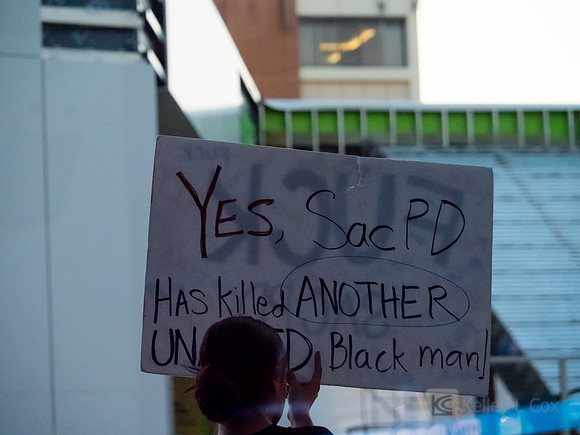 Yes, SacPD
Has killed ANOTHER
Black man!
Kelley L Cox